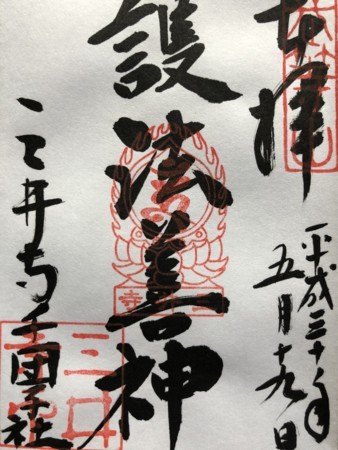 奉拝
平成三十年
五月十九日
護法善神
三井寺千団子社